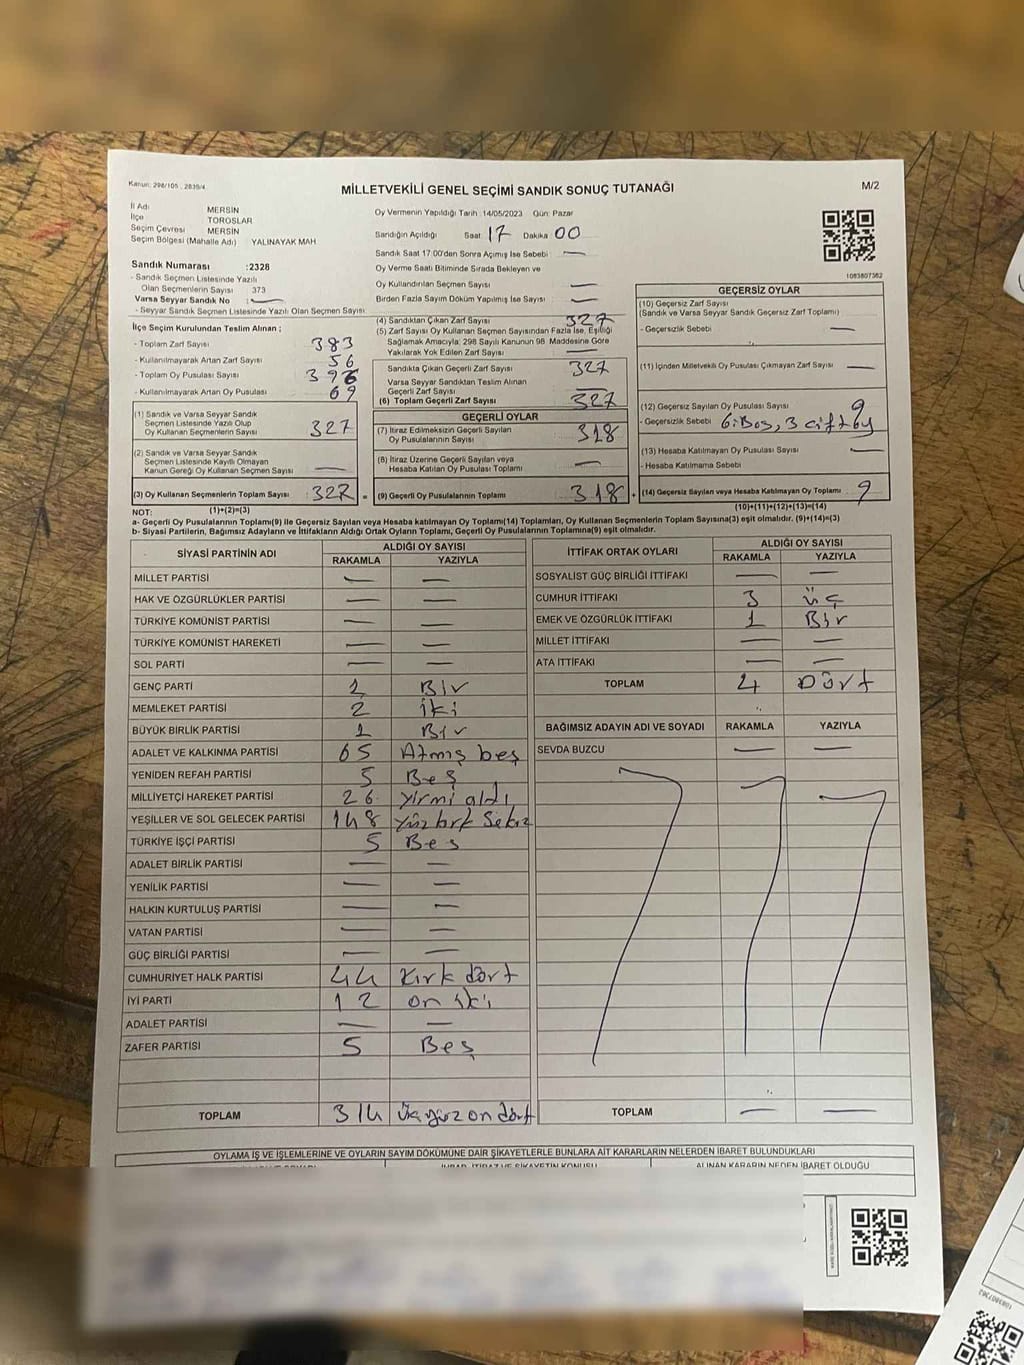 Kanun: 298/105 , 2839/4
MİLLETVEKİLİ GENEL SEÇİMİ SANDIK SONUÇ TUTANAĞI
M/2
İl Adı MERSİN
İlçe TOROSLAR
Seçim Çevresi MERSİN
Seçim Bölgesi (Mahalle Adı) YALINAYAK MAH.
Sandık Numarası :2328
- Sandık Seçmen Listesinde Yazılı
Olan Seçmenlerin Sayısı 373
Varsa Seyyar Sandık No : —
- Seyyar Sandık Seçmen Listesinde Yazılı Olan Seçmen Sayısı
İlçe Seçim Kurulundan Teslim Alınan ;
- Toplam Zarf Sayısı 383
- Kullanılmayarak Artan Zarf Sayısı 56
- Toplam Oy Pusulası Sayısı 396
- Kullanılmayarak Artan Oy Pusulası 69
(1) Sandık ve Varsa Seyyar Sandık
Seçmen Listesinde Yazılı Olup
Oy Kullanan Seçmenlerin Sayısı 327
(2) Sandık ve Varsa Seyyar Sandık
Seçmen Listesinde Kayıtlı Olmayan
Kanun Gereği Oy Kullanan Seçmen Sayısı —
(3) Oy Kullanan Seçmenlerin Toplam Sayısı 327 =
(1)+(2)=(3)
Oy Vermenin Yapıldığı Tarih :14/05/2023 Gün: Pazar
Sandığın Açıldığı Saat 17 Dakika 00
Sandık Saat 17.00'den Sonra Açımış İse Sebebi —
Oy Verme Saati Bitiminde Sırada Bekleyen ve
Oy Kullandırılan Seçmen Sayısı —
Birden Fazla Sayım Döküm Yapılmış İse Sayısı —
(4) Sandıktan Çıkan Zarf Sayısı 327
(5) Zarf Sayısı Oy Kullanan Seçmen Sayısından Fazla İse, Eşitliği
Sağlamak Amacıyla; 298 Sayılı Kanunun 98. Maddesine Göre
Yakılarak Yok Edilen Zarf Sayısı —
Sandıkta Çıkan Geçerli Zarf Sayısı 327
Varsa Seyyar Sandıktan Teslim Alınan
Geçerli Zarf Sayısı —
(6) Toplam Geçerli Zarf Sayısı 327
GEÇERLİ OYLAR
(7) İtiraz Edilmeksizin Geçerli Sayılan
Oy Pusulalarının Sayısı 318
(8) İtiraz Üzerine Geçerli Sayılan veya
Hesaba Katılan Oy Pusulası Toplamı —
(9) Geçerli Oy Pusulalarının Toplamı 318 +
1083807362
GEÇERSİZ OYLAR
(10) Geçersiz Zarf Sayısı
(Sandık ve Varsa Seyyar Sandık Geçersiz Zarf Toplamı)
- Geçersizlik Sebebi —
(11) İçinden Milletvekili Oy Pusulası Çıkmayan Zarf Sayısı —
(12) Geçersiz Sayılan Oy Pusulası Sayısı 9
- Geçersizlik Sebebi 6 Boş, 3 çift oy
(13) Hesaba Katılmayan Oy Pusulası Sayısı —
- Hesaba Katılmama Sebebi
(14) Geçersiz Sayılan veya Hesaba Katılmayan Oy Toplamı 9
(10)+(11)+(12)+(13)=(14)
NOT:
a- Geçerli Oy Pusulalarının Toplamı(9) ile Geçersiz Sayılan veya Hesaba katılmayan Oy Toplamı(14) Toplamları, Oy Kullanan Seçmenlerin Toplam Sayısına(3) eşit olmalıdır. (9)+(14)=(3)
b- Siyasi Partilerin, Bağımsız Adayların ve İttifakların Aldığı Ortak Oyların Toplamı, Geçerli Oy Pusulalarının Toplamına(9) eşit olmalıdır.
SİYASİ PARTİNİN ADI ALDIĞI OY SAYISI
RAKAMLA YAZIYLA
MİLLET PARTİSİ — —
HAK VE ÖZGÜRLÜKLER PARTİSİ — —
TÜRKİYE KOMÜNİST PARTİSİ — —
TÜRKİYE KOMÜNİST HAREKETİ — —
SOL PARTİ — —
GENÇ PARTİ 1 Bir
MEMLEKET PARTİSİ 2 iki
BÜYÜK BİRLİK PARTİSİ 1 Bir
ADALET VE KALKINMA PARTİSİ 65 Atmış beş
YENİDEN REFAH PARTİSİ 5 Beş
MİLLİYETÇİ HAREKET PARTİSİ 26 yirmi aldı
YEŞİLLER VE SOL GELECEK PARTİSİ 148 Yüzkırk Sekiz
TÜRKİYE İŞÇİ PARTİSİ 5 Beş
ADALET BİRLİK PARTİSİ — —
YENİLİK PARTİSİ — —
HALKIN KURTULUŞ PARTİSİ — —
VATAN PARTİSİ — —
GÜÇ BİRLİĞİ PARTİSİ — —
CUMHURİYET HALK PARTİSİ 44 Kırk dört
İYİ PARTİ 12 on iki
ADALET PARTİSİ — —
ZAFER PARTİSİ 5 Beş
TOPLAM 314 üçyüz on dört
İTTİFAK ORTAK OYLARI ALDIĞI OY SAYISI
RAKAMLA YAZIYLA
SOSYALİST GÜÇ BİRLİĞİ İTTİFAKI — —
CUMHUR İTTİFAKI 3 üç
EMEK VE ÖZGÜRLÜK İTTİFAKI 1 Bir
MİLLET İTTİFAKI — —
ATA İTTİFAKI — —
TOPLAM 4 Dört
BAĞIMSIZ ADAYIN ADI VE SOYADI RAKAMLA YAZIYLA
SEVDA BUZCU — —
TOPLAM — —
OYLAMA İŞ VE İŞLEMLERİNE VE OYLARIN SAYIM DÖKÜMÜNE DAİR ŞİKAYETLERLE BUNLARA AİT KARARLARIN NELERDEN İBARET BULUNDUKLARI
İHBAR, İTİRAZ VE ŞİKAYETİN KONUSU ALINAN KARARIN NEDEN İBARET OLDUĞU
1083807362